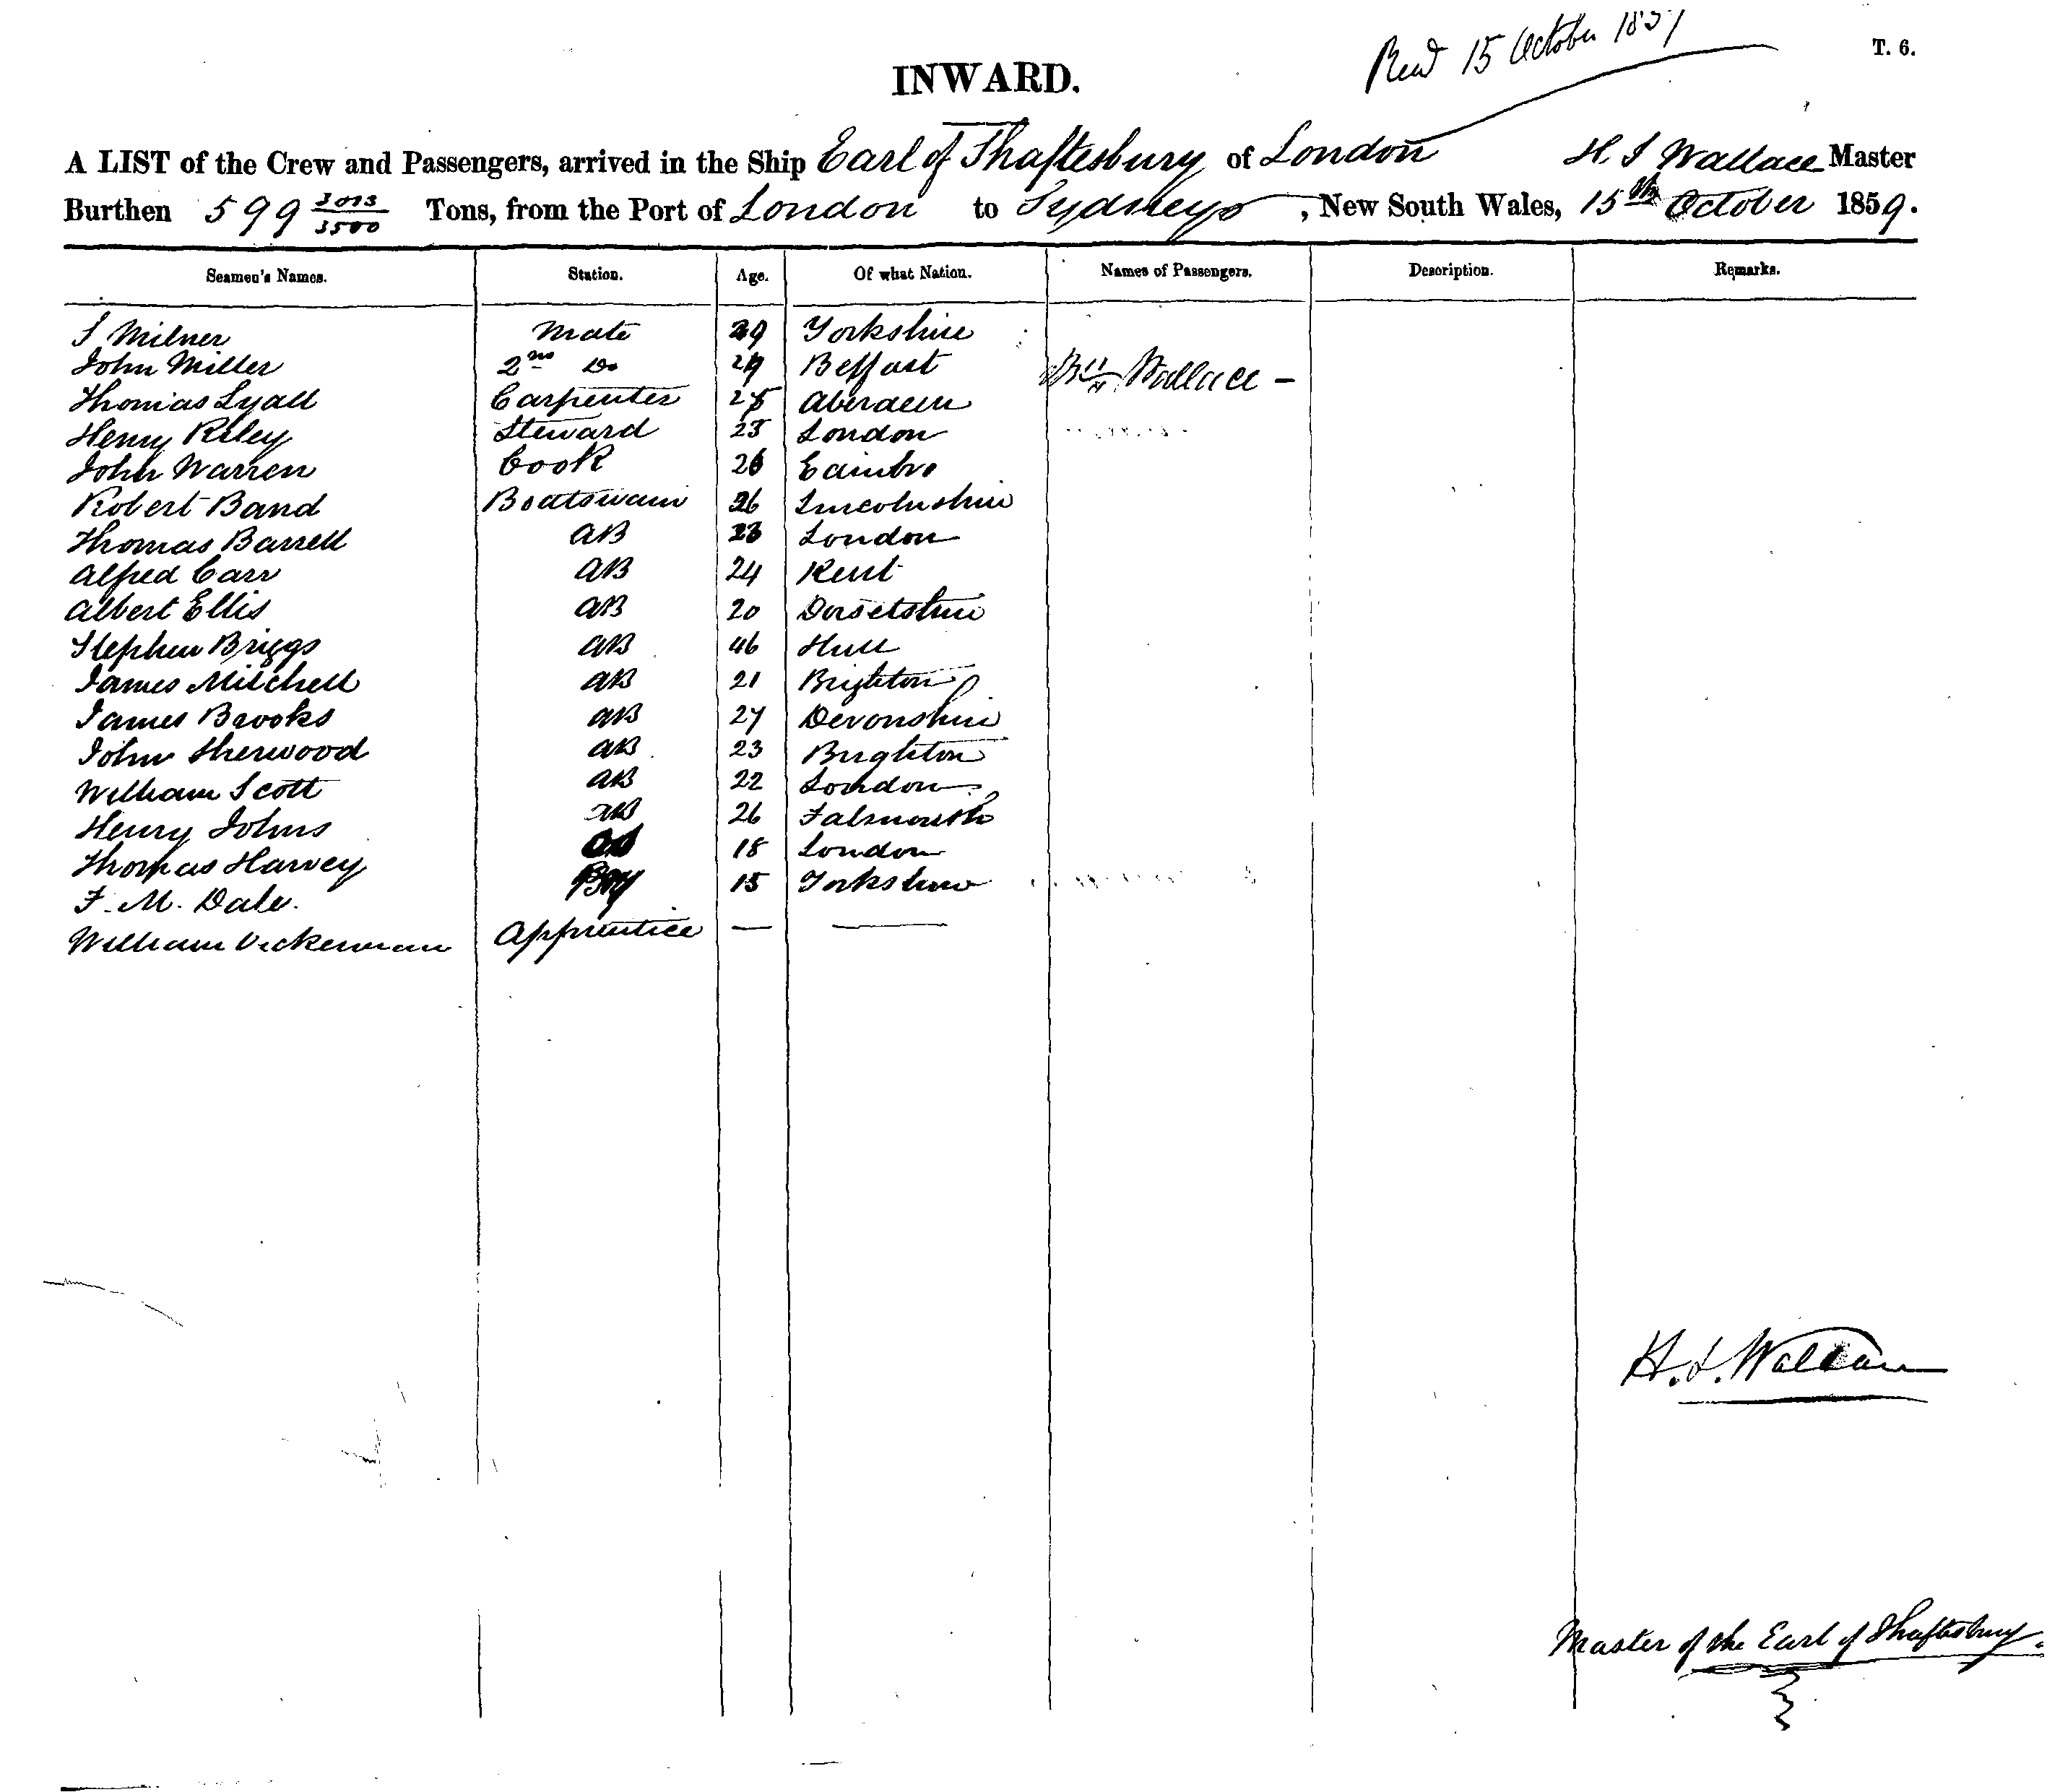 Recd 15 October 1859
T. 6.
INWARD.
A LIST of the Crew and Passengers, arrived in the Ship Earl of Shaftesbury of London H. S Wallace Master
Burthen 599 2013/3500 Tons, from the Port of London to Sydney, New South Wales, 15th October 1859.
Seamen's Names. Station. Age. Of what Nation. Names of Passengers. Description. Remarks.
S Milner Mate 29 Yorkshire
John Miller 2nd Do 29 Belfast Wallace –
Thomas Lyall Carpenter 25 Aberdeen
Henry Riley Steward 25 London
John Warren Cook 26 Edinbro
Robert Band Boatswain 26 Lincolnshire
Thomas Barrell AB 23 London
Alfred Carr AB 24 Kent
Albert Ellis AB 20 Dorsetshire
Stephen Briggs AB 46 Hull
James Mitchell AB 21 Brighton
James Brooks AB 27 Devonshire
John Sherwood AB 23 Brighton
William Scott AB 22 London
Henry Johns AB 26 Falmouth
Thomas Harvey OS 18 London
F. M. Dale. Boy 15 Yorkshire
William Vickerman Apprentice — —
H. S. Wallace
Master of the Earl of Shaftesbury.